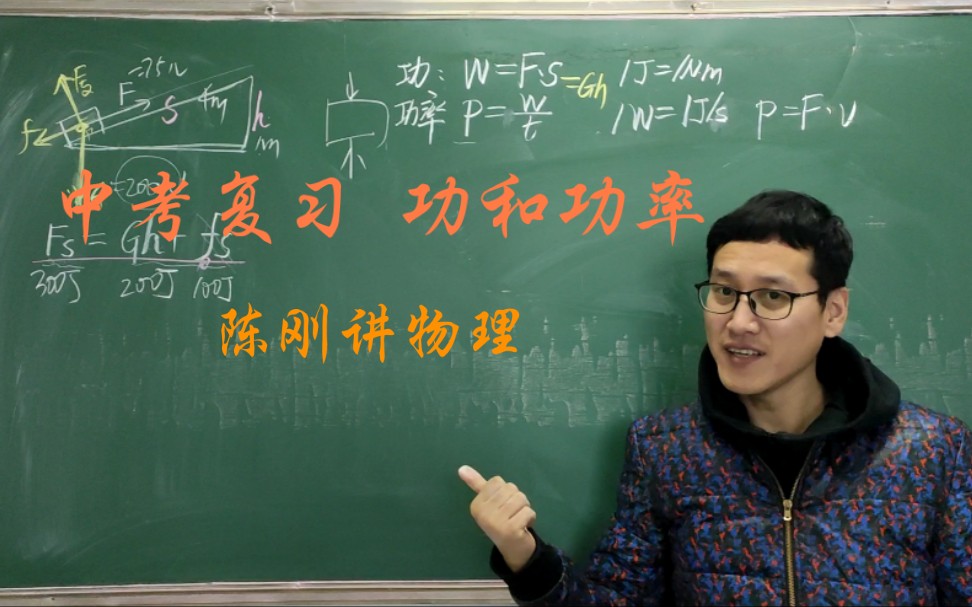 功: W=F·S=Gh 1J=1Nm
功率 P=W/t 1W=1J/s P=F·v
F =75N
S 4m
h
1m
f
中考复习 功和功率
Fs=Gh+fs
300J 200J 100J
陈刚讲物理